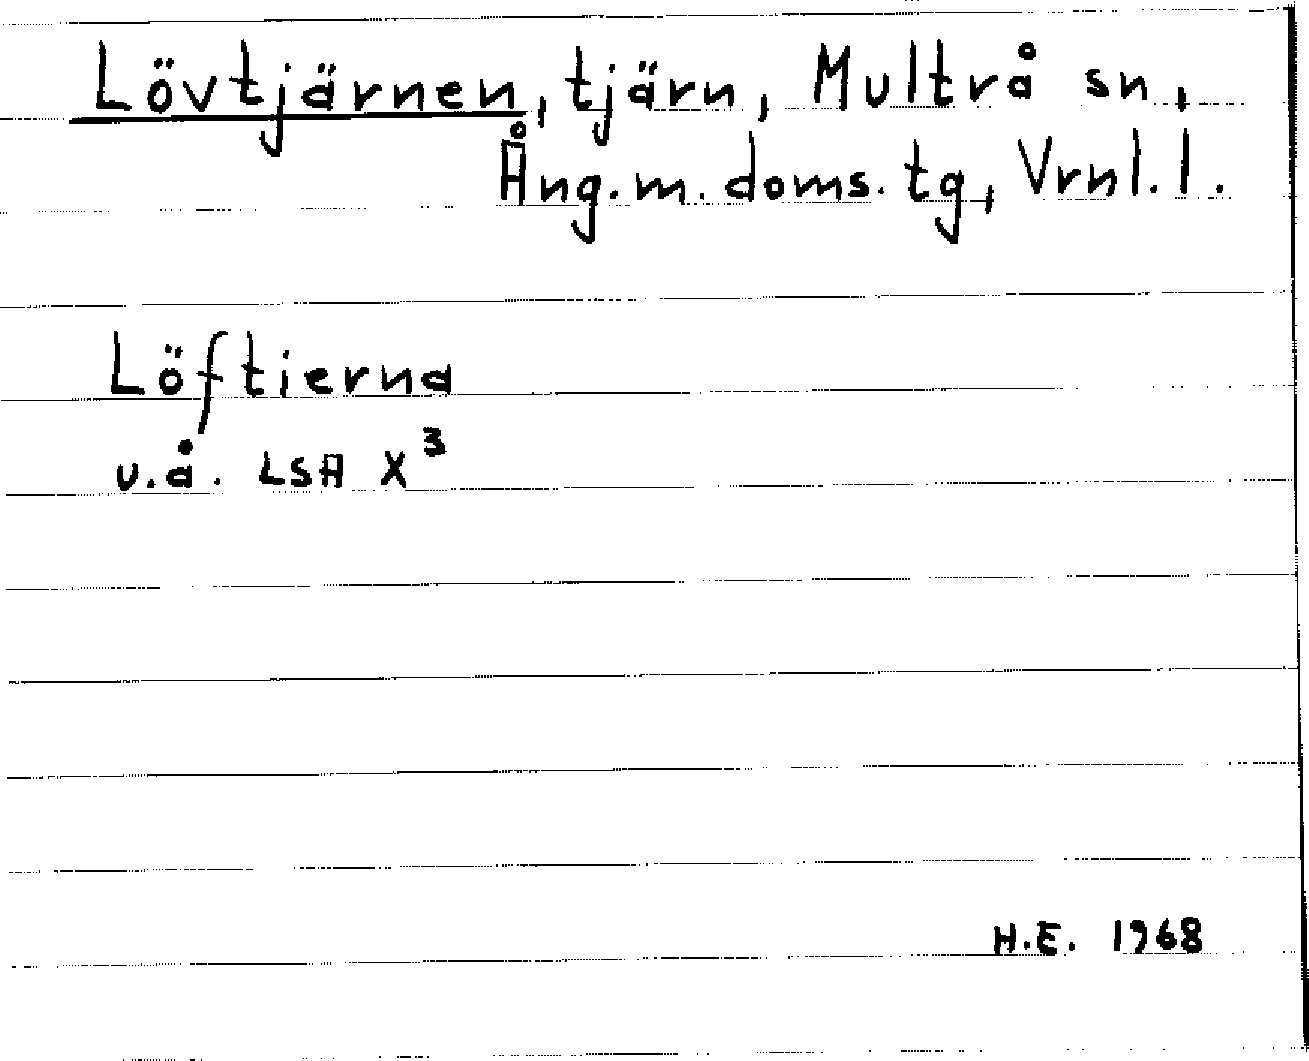 Lövtjärnen, tjärn, Multrå sn,
Ång.m. doms. tg, Vrnl. l.
Löftierna
u.å. LSA X³
H.E. 1968